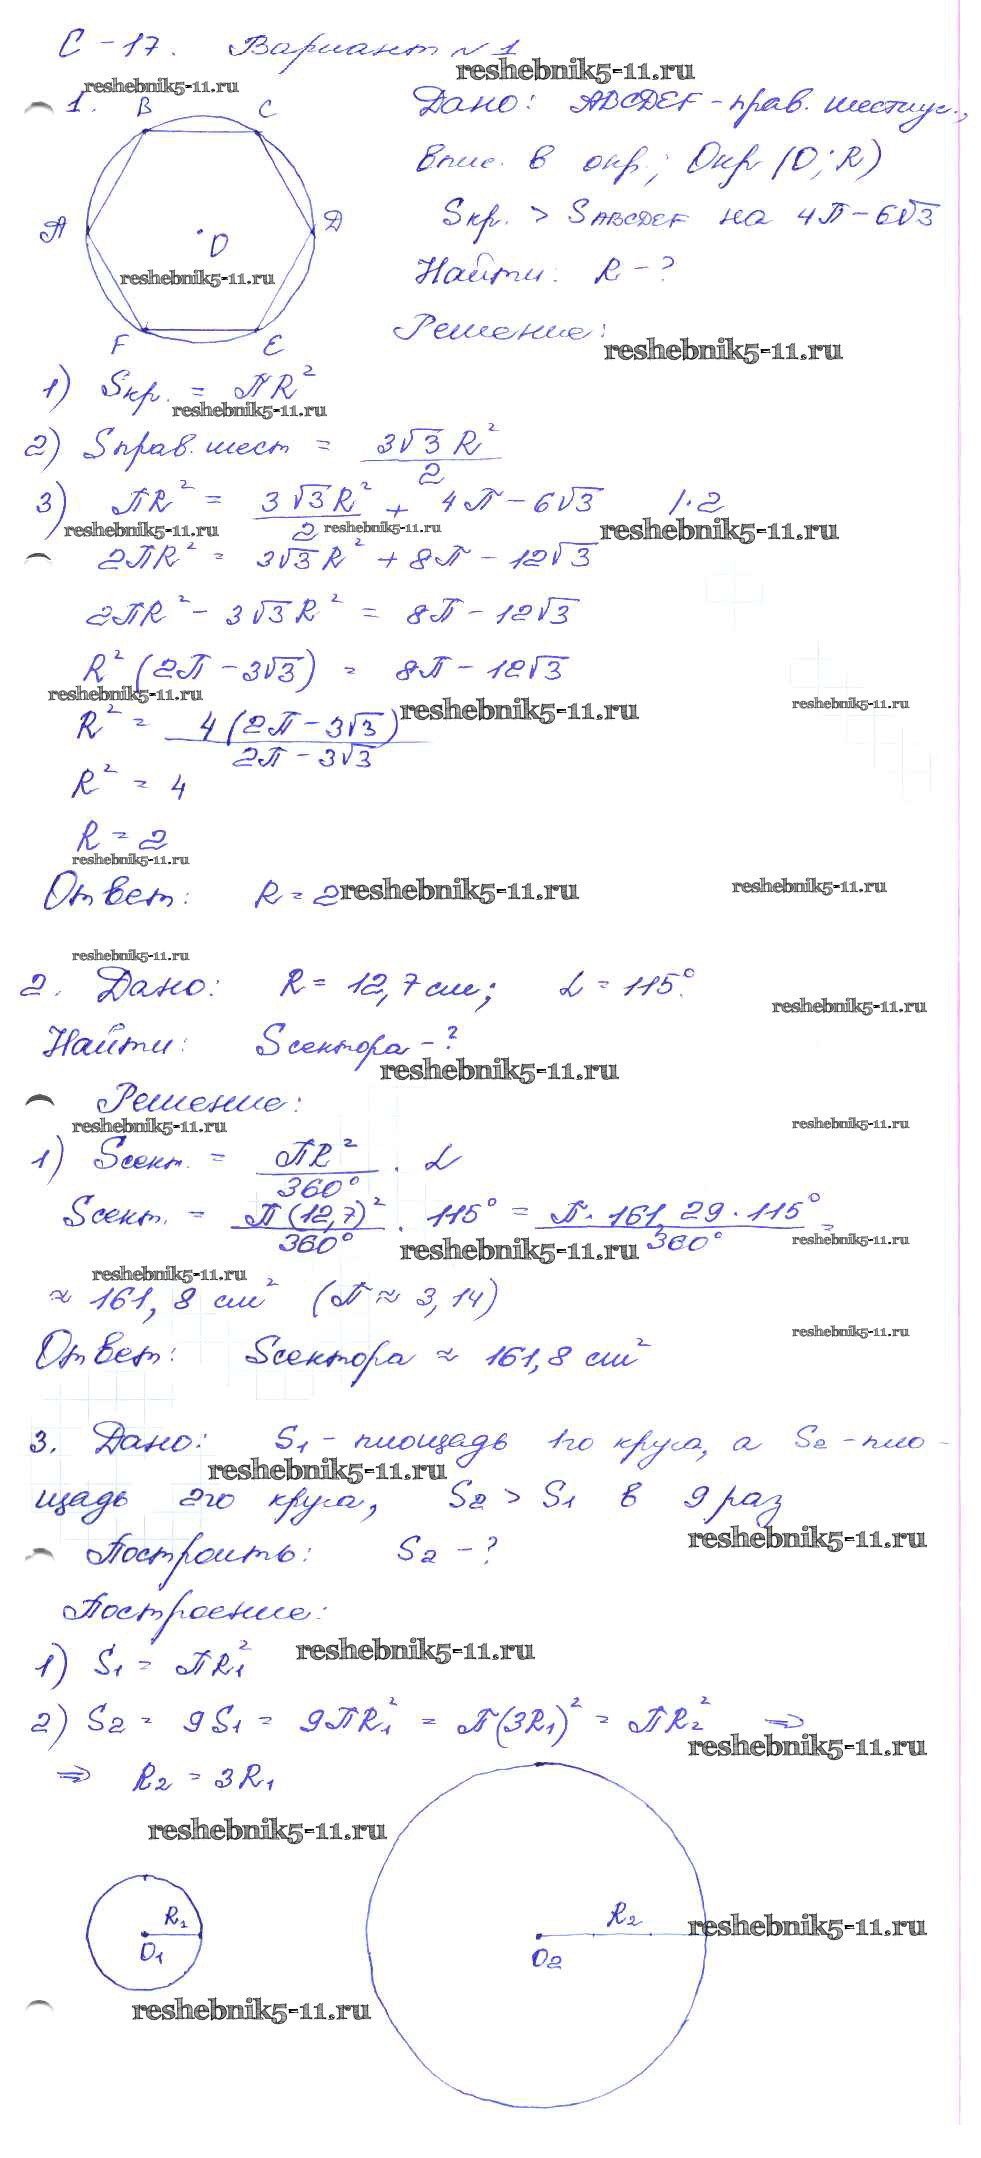 С-17. Вариант №1
reshebnik5-11.ru
reshebnik5-11.ru
1.
B C
A D
O
F E
reshebnik5-11.ru
Дано: ABCDEF - прав. шестиуг.,
впис. в окр.; Окр (O; R)
Sкр. > SABCDEF на 4π - 6√3
Найти: R - ?
Решение:
reshebnik5-11.ru
1) Sкр. = πR²
reshebnik5-11.ru
2) Sправ. шест = 3√3 R² / 2
3) πR² = 3√3R² / 2 + 4π - 6√3 | · 2
reshebnik5-11.ru reshebnik5-11.ru reshebnik5-11.ru
2πR² = 3√3R² + 8π - 12√3
2πR² - 3√3R² = 8π - 12√3
R² (2π - 3√3) = 8π - 12√3
reshebnik5-11.ru reshebnik5-11.ru reshebnik5-11.ru
R² = 4(2π - 3√3) / 2π - 3√3
R² = 4
R = 2
reshebnik5-11.ru
Ответ: R = 2
reshebnik5-11.ru reshebnik5-11.ru
reshebnik5-11.ru
2. Дано: R = 12,7 см; L = 115°.
reshebnik5-11.ru
Найти: Sсектора - ?
reshebnik5-11.ru
Решение:
reshebnik5-11.ru reshebnik5-11.ru
1) Sсект. = πR² / 360° · L
Sсект. = π(12,7)² / 360° · 115° = π · 161,29 · 115° / 360° =
reshebnik5-11.ru reshebnik5-11.ru
reshebnik5-11.ru
≈ 161,8 см² (π ≈ 3,14)
reshebnik5-11.ru
Ответ: Sсектора ≈ 161,8 см²
3. Дано: S1 - площадь 1го круга, а S2 - пло-
reshebnik5-11.ru
щадь 2го круга, S2 > S1 в 9 раз
reshebnik5-11.ru
Построить: S2 - ?
Построение:
1) S1 = πR1²
reshebnik5-11.ru
2) S2 = 9S1 = 9πR1² = π(3R1)² = πR2² ⇒
reshebnik5-11.ru
⇒ R2 = 3R1
reshebnik5-11.ru
R1
O1
R2
O2
reshebnik5-11.ru
reshebnik5-11.ru